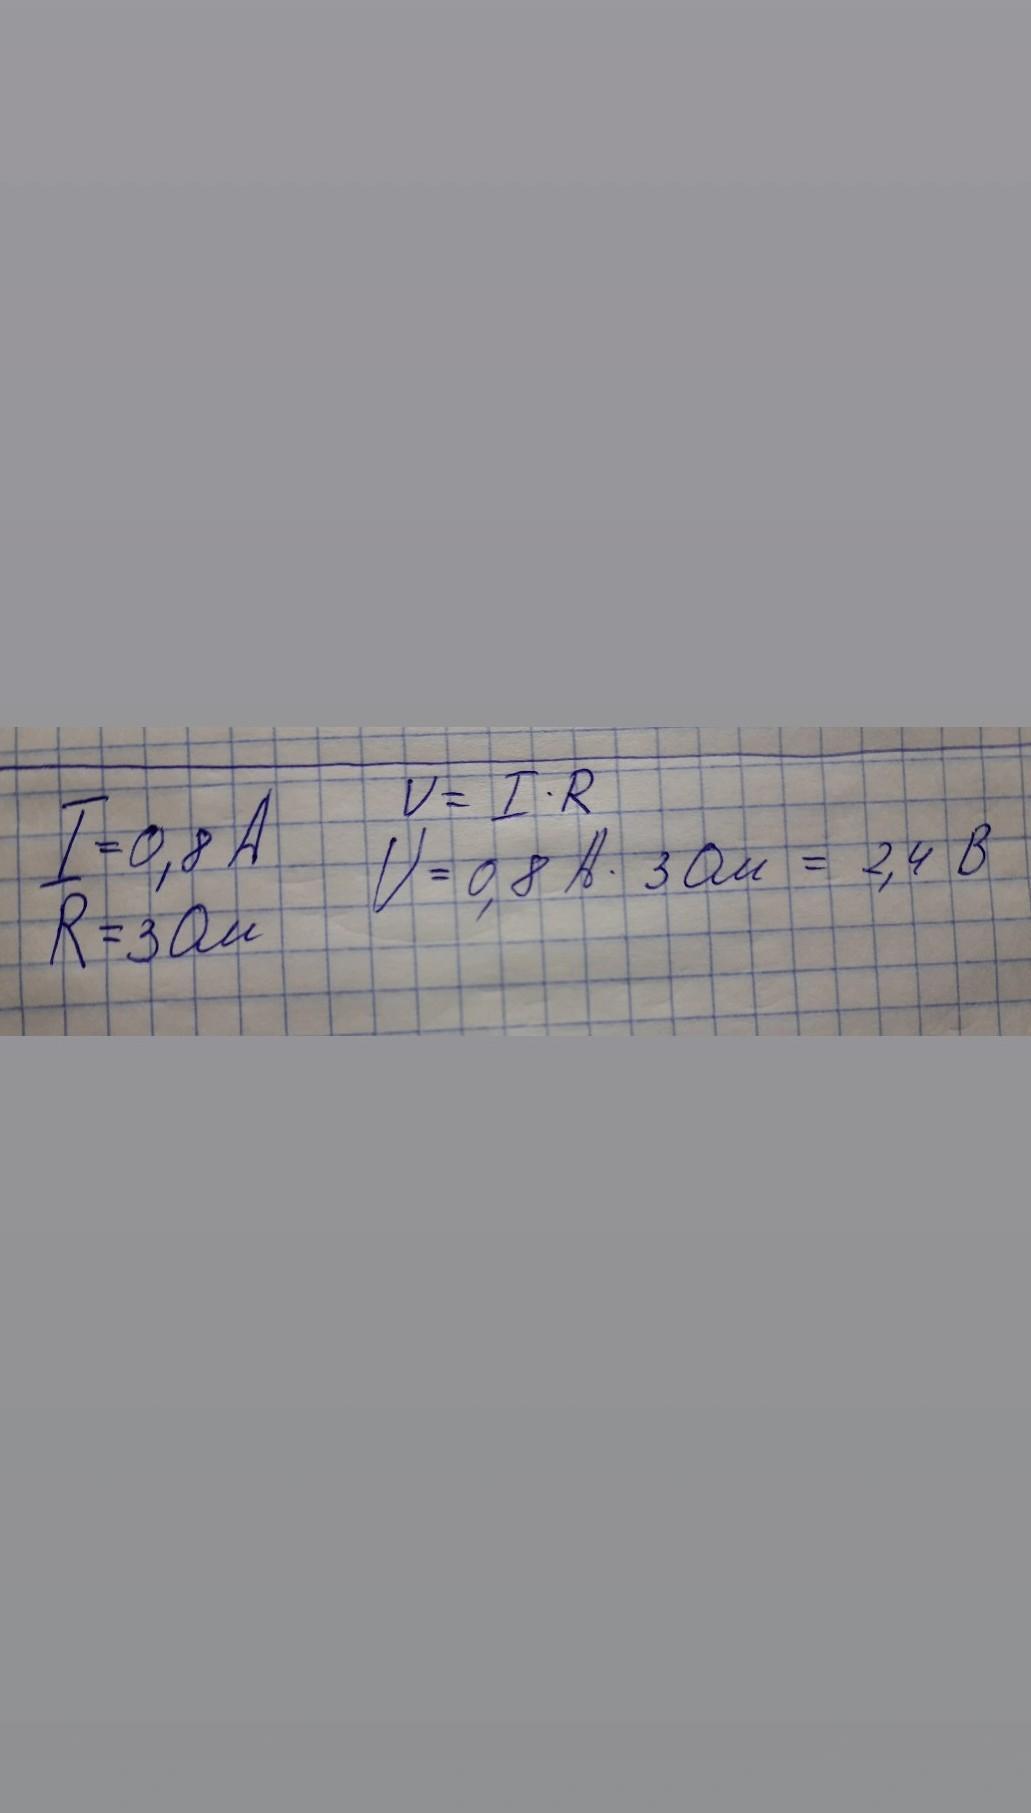 I=0,8 A
R=3 Ом
U= I·R
U=0,8 A· 3 Ом = 2,4 В